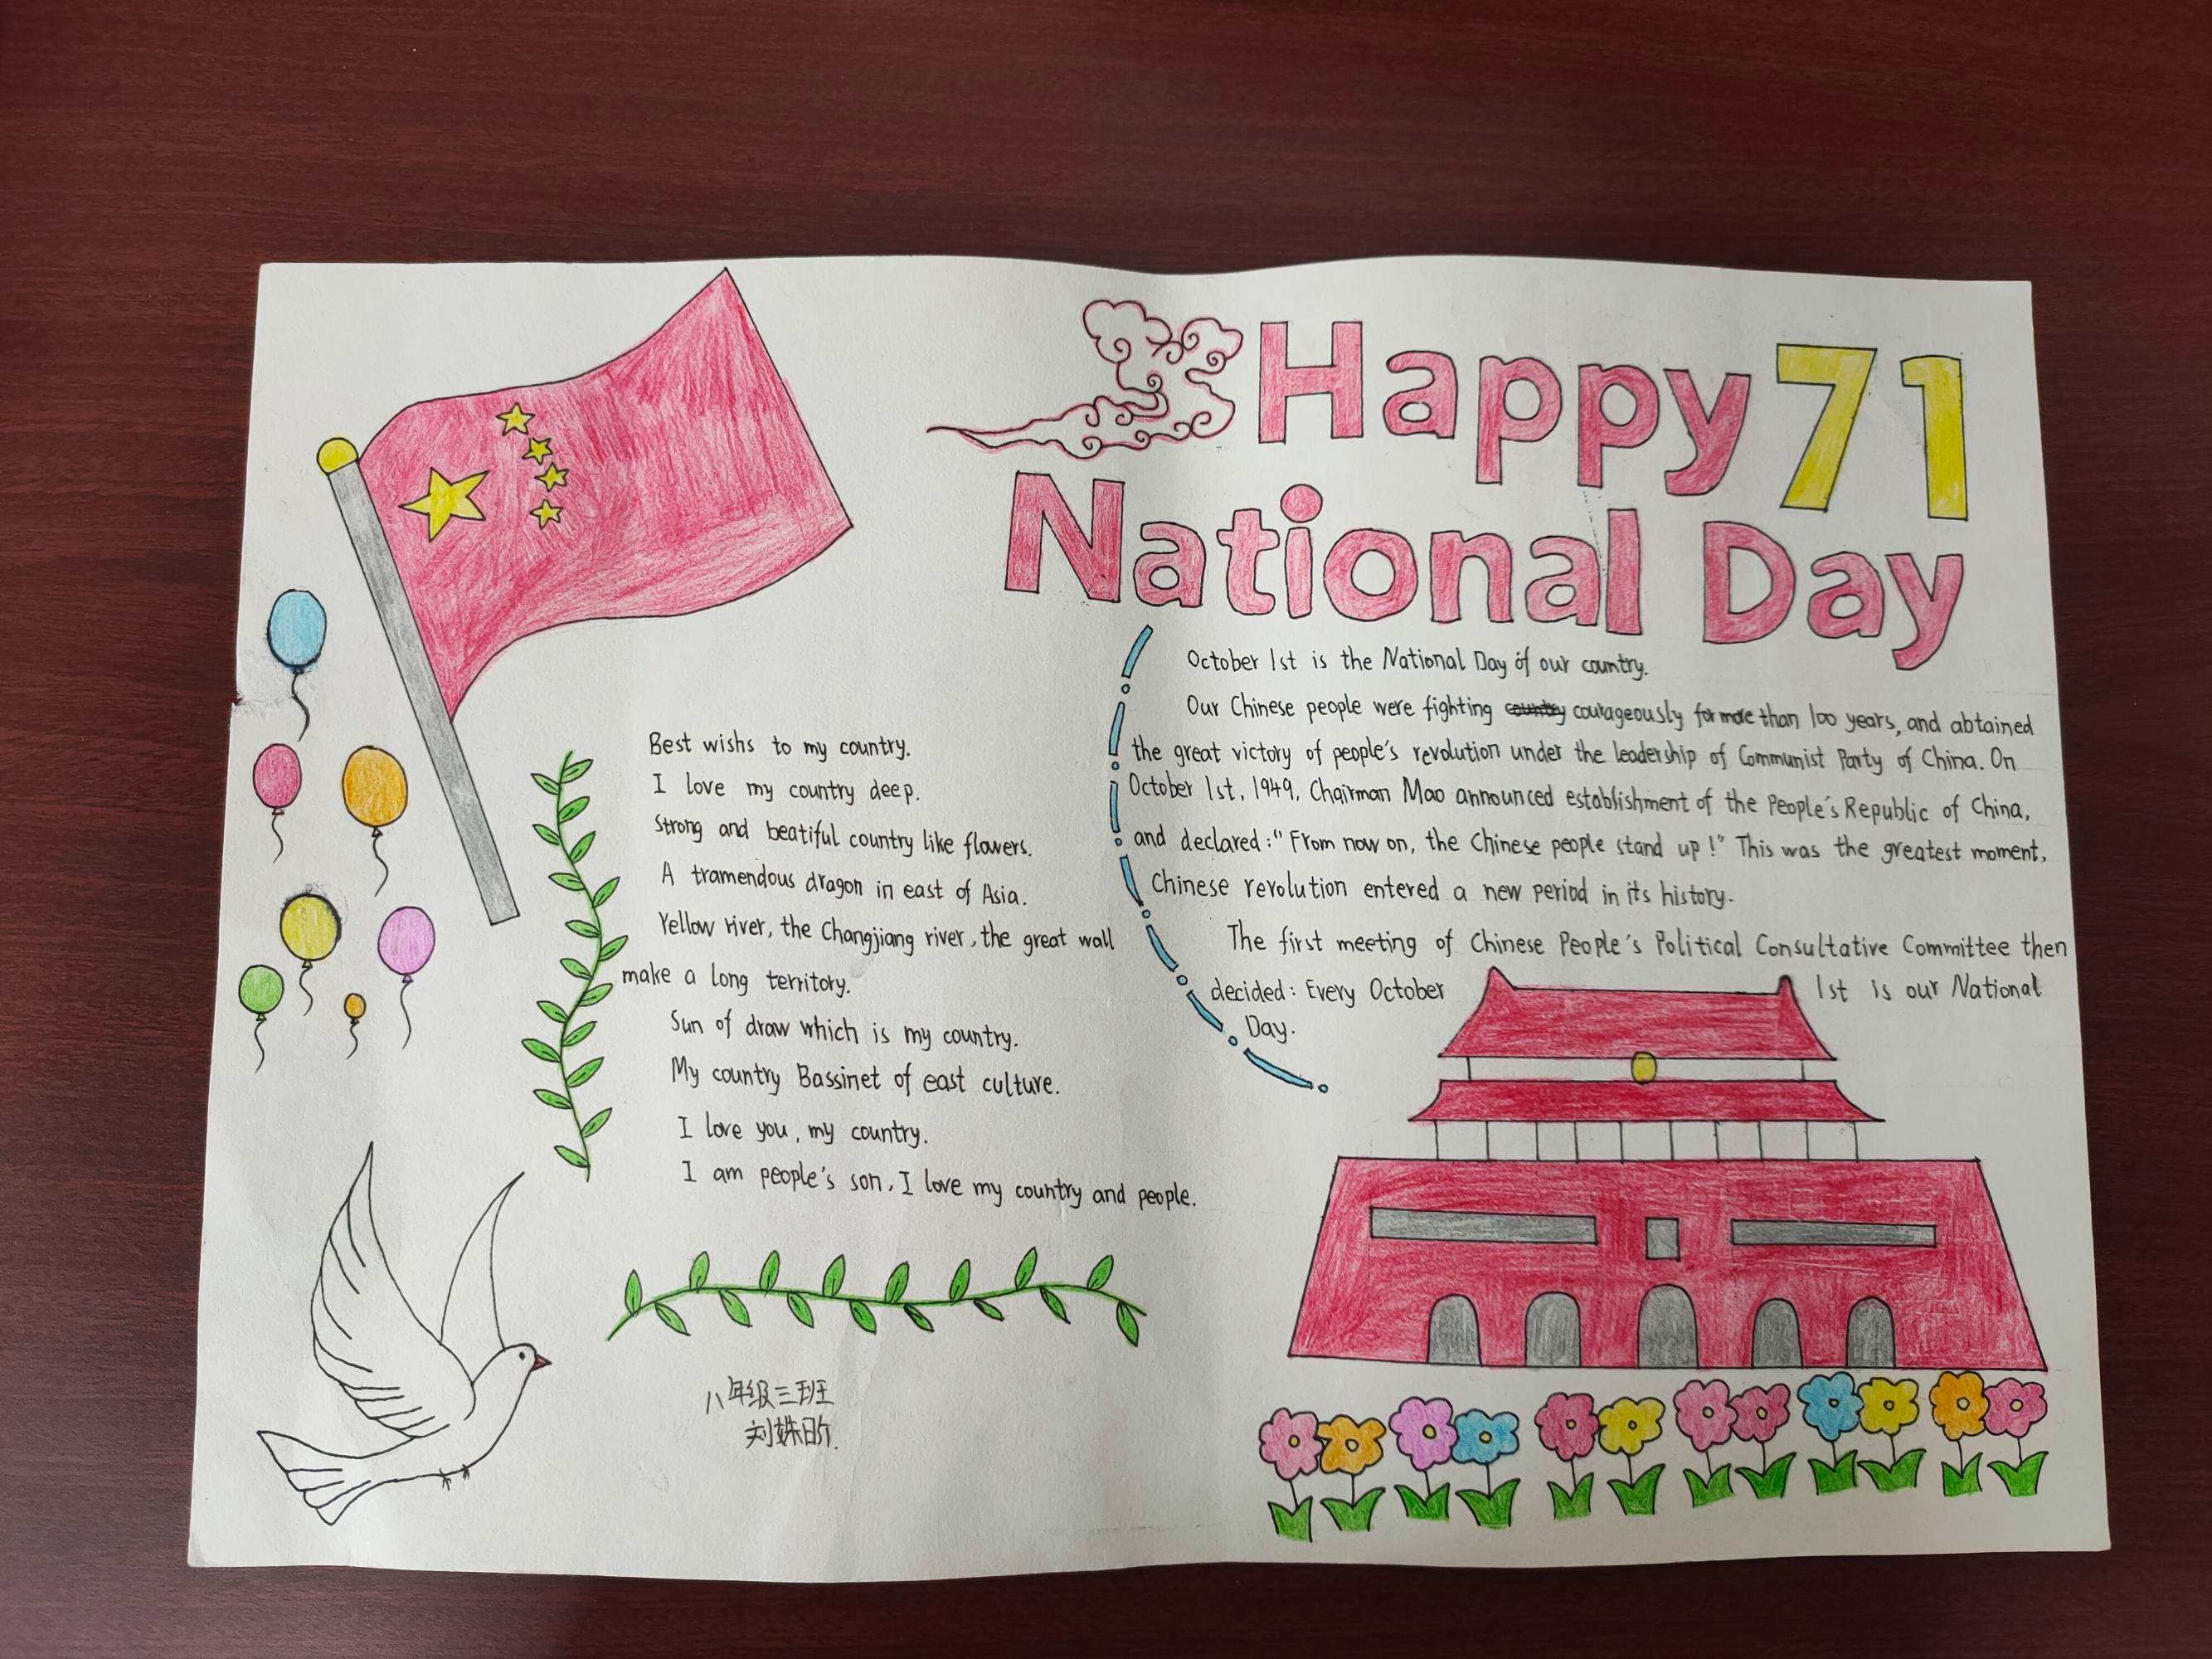 Happy 71
National Day
October 1st is the National Day of our country.
Our Chinese people were fighting courageously for more than 100 years, and abtained
the great victory of people's revolution under the leadership of Communist Party of China. On
October 1st, 1949, Chairman Mao announced establishment of the People's Republic of China,
and declared:" From now on, the Chinese people stand up!" This was the greatest moment,
Chinese revolution entered a new period in its history.
The first meeting of Chinese People's Political Consultative Committee then
decided: Every October 1st is our National
Day.
Best wishs to my country.
I love my country deep.
Strong and beatiful country like flowers.
A tramendous dragon in east of Asia.
Yellow river, the Changjiang river, the great wall
make a long territory.
Sun of draw which is my country.
My country Bassinet of east culture.
I love you, my country.
I am people's son, I love my country and people.
八年级三班
刘姝昕